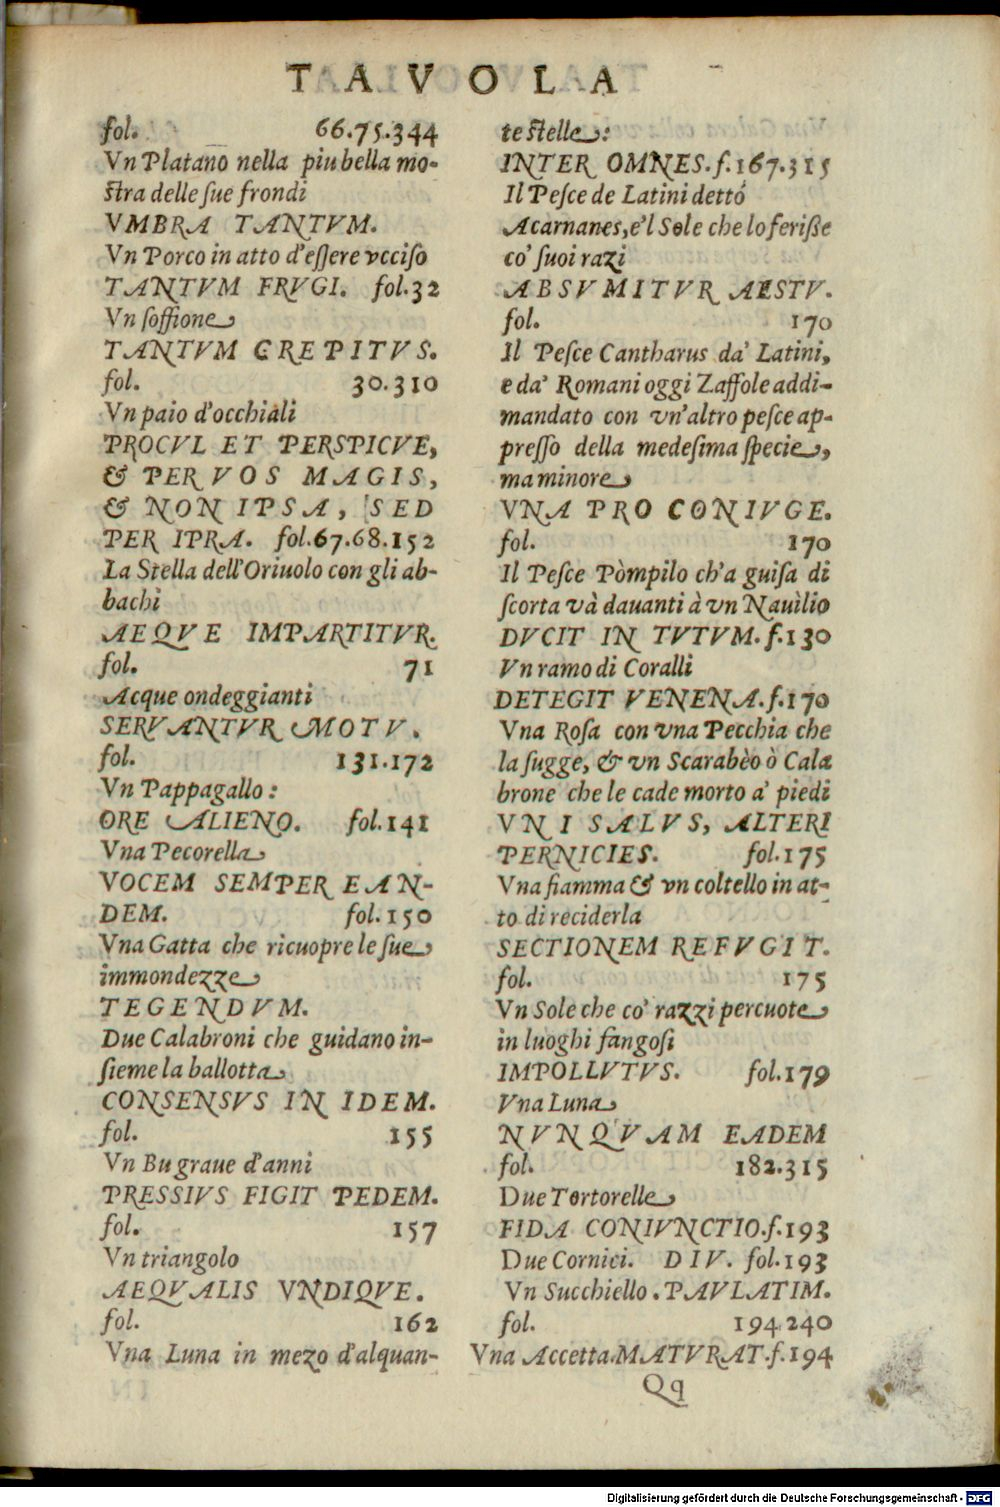 TAVOLA
fol. 66.75.344
Vn Platano nella piu bella mo-
ſtra delle ſue frondi
VMBRA TANTVM.
Vn Porco in atto d'eſſere vcciſo
TANTVM FRVGI. fol.32
Vn ſoffione
TANTVM CREPITVS.
fol. 30.310
Vn paio d'occhiali
PROCVL ET PERSPICVE,
& PER VOS MAGIS,
& NON IPSA, SED
PER IPRA. fol.67.68.152
La Stella dell'Oriuolo con gli ab-
bachi
AEQVE IMPARTITVR.
fol. 71
Acque ondeggianti
SERVANTVR MOTV.
fol. 131.172
Vn Pappagallo:
ORE ALIENO. fol.141
Vna Pecorella
VOCEM SEMPER EAN-
DEM. fol.150
Vna Gatta che ricuopre le ſue
immondezze
TEGENDVM.
Due Calabroni che guidano in-
ſieme la ballotta
CONSENSVS IN IDEM.
fol. 155
Vn Bu graue d'anni
PRESSIVS FIGIT PEDEM.
fol. 157
Vn triangolo
AEQVALIS VNDIQVE.
fol. 162
Vna Luna in mezo d'alquan-
te ſtelle:
INTER OMNES.f.167.315
Il Peſce de Latini dettó
Acarnanes,e'l Sole che lo feriſſe
co' ſuoi razi
ABSVMITVR AESTV.
fol. 170
Il Peſce Cantharus da' Latini,
e da' Romani oggi Zaffole addi-
mandato con vn'altro peſce ap-
preſſo della medeſima ſpecie,
ma minore
VNA PRO CONIVGE.
fol. 170
Il Peſce Pòmpilo ch'a guiſa di
ſcorta và dauanti à vn Nauilio
DVCIT IN TVTVM.f.130
Vn ramo di Coralli
DETEGIT VENENA.f.170
Vna Roſa con vna Pecchia che
la ſugge, & vn Scarabèo ò Cala
brone che le cade morto a' piedi
VNI SALVS, ALTERI
PERNICIES. fol.175
Vna fiamma & vn coltello in at-
to di reciderla
SECTIONEM REFVGIT.
fol. 175
Vn Sole che co' razzi percuote
in luoghi fangoſi
IMPOLLVTVS. fol.179
Vna Luna
NVNQVAM EADEM
fol. 182.315
Due Tortorelle
FIDA CONIVNCTIO.f.193
Due Cornici. DIV. fol.193
Vn Succhiello.PAVLATIM.
fol. 194 240
Vna Accetta.MATVRAT.f.194
Qq
Digitalisierung gefördert durch die Deutsche Forschungsgemeinschaft - DFG